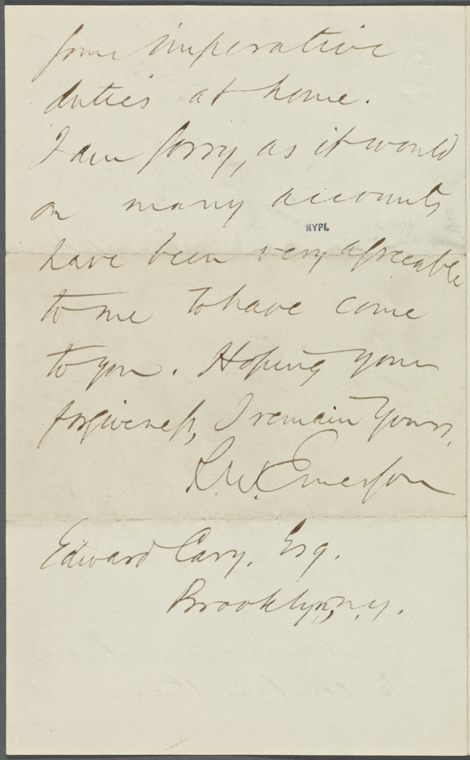 some imperative
duties at home.
I am sorry, as it would
on many accounts
NYPL
have been very agreeable
to me to have come
to you. Hoping your
forgiveness, I remain Yours,
R. W. Emerson
Edward Cary, Esq.
Brooklyn, N.Y.